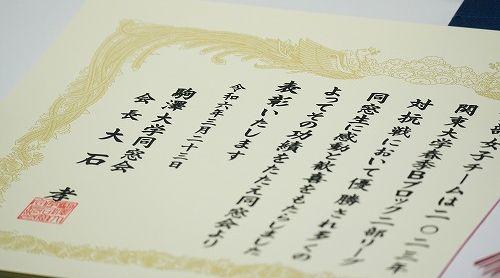 部女子チームは二〇二三年
関東大学春季Bブロック二部リーグ
対抗戦において優勝され多くの
同窓生に感動と歓喜をもたらしました
よってその功績をたたえ同窓会より
表彰いたします
令和六年三月二十三日
駒澤大学同窓会
会長 大石 孝